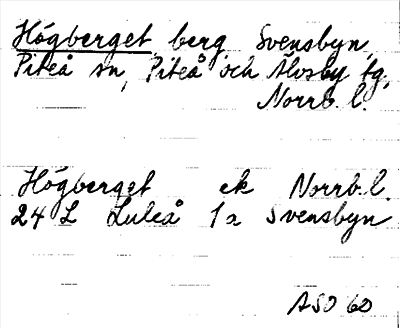 Högberget, berg Svensbyn,
Piteå sn, Piteå och Älvsby tg,
Norrb. l.
Högberget ek Norrb. l.
24 L Luleå 1a Svensbyn
ASO 60